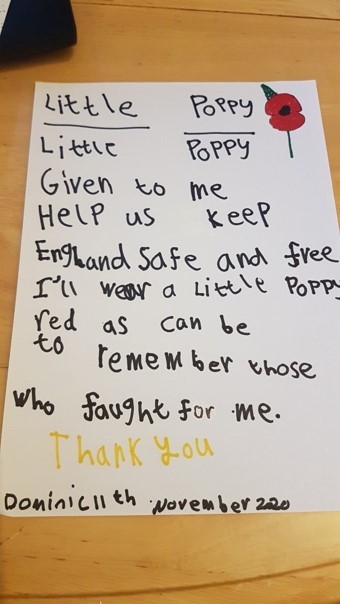 Little Poppy
Little Poppy
Given to me
Help us keep
England safe and free
I'll wear a Little Poppy
red as can be
to remember those
who faught for me.
Thank you
Dominic 11th November 2020